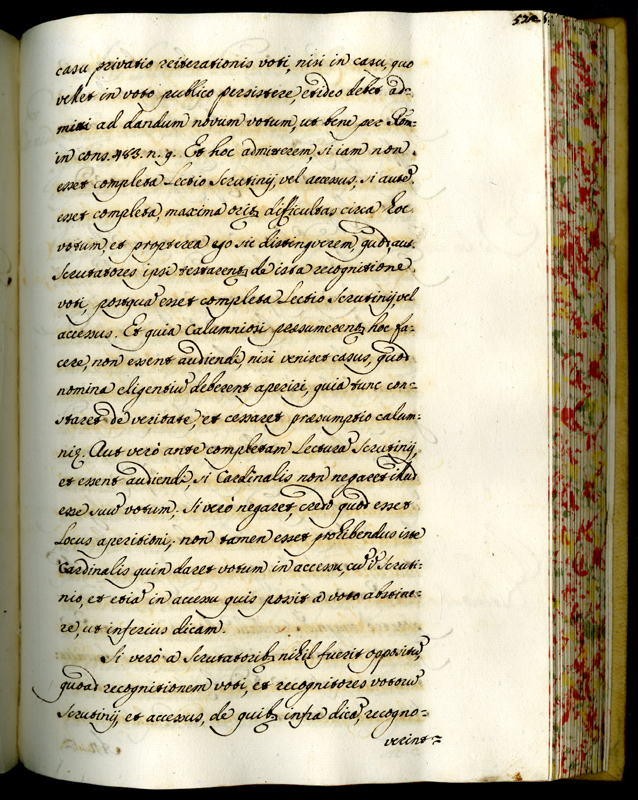 casu privatio reiterationis voti, nisi in casu, quo
vellet in voto publico persistere, et ideo debet ad-
mitti ad dandum novum votum, ut bene per Rom:
in cons. 483. n. 9. Et hoc admitterem, si iam non
esset completa Lectio Scrutinij, vel accessus, si autē
esset completa, maxima oritꝫ difficultas circa hoc
votum, et propterea ego sic distinguerem, quod aut
Scrutatores ipsi testarentꝫ de ista recognitione
voti, postquā esset completa Lectio Scrutinij, vel
accessus. Et quia Calumniosi præsumerentꝫ hoc fa-
cere, non essent audiendi, nisi veniret casus, quod
nomina eligentiū deberent aperiri, quia tunc con-
staret de veritate, et cessaret præsumptio calum-
nię. Aut verò ante completam Lecturā Scrutinij,
et essent audiendi, si Cardinalis non negaret illud
esse suū votum; si verò negaret, credo quod esset
Locus aperitioni, non tamen esset prohibendus iste
Cardinalis quin daret votum in accessu, cū Scruti-
nio, et etiā in accessu quis possit a voto abstine-
re, ut inferius dicam.
Si verò a Scrutatoribꝫ nihil fuerit oppositū,
quoad recognitionem voti, et recognitores votorū
Scrutinij, et accessus, de quibꝫ infra dicā, recogno-
verint